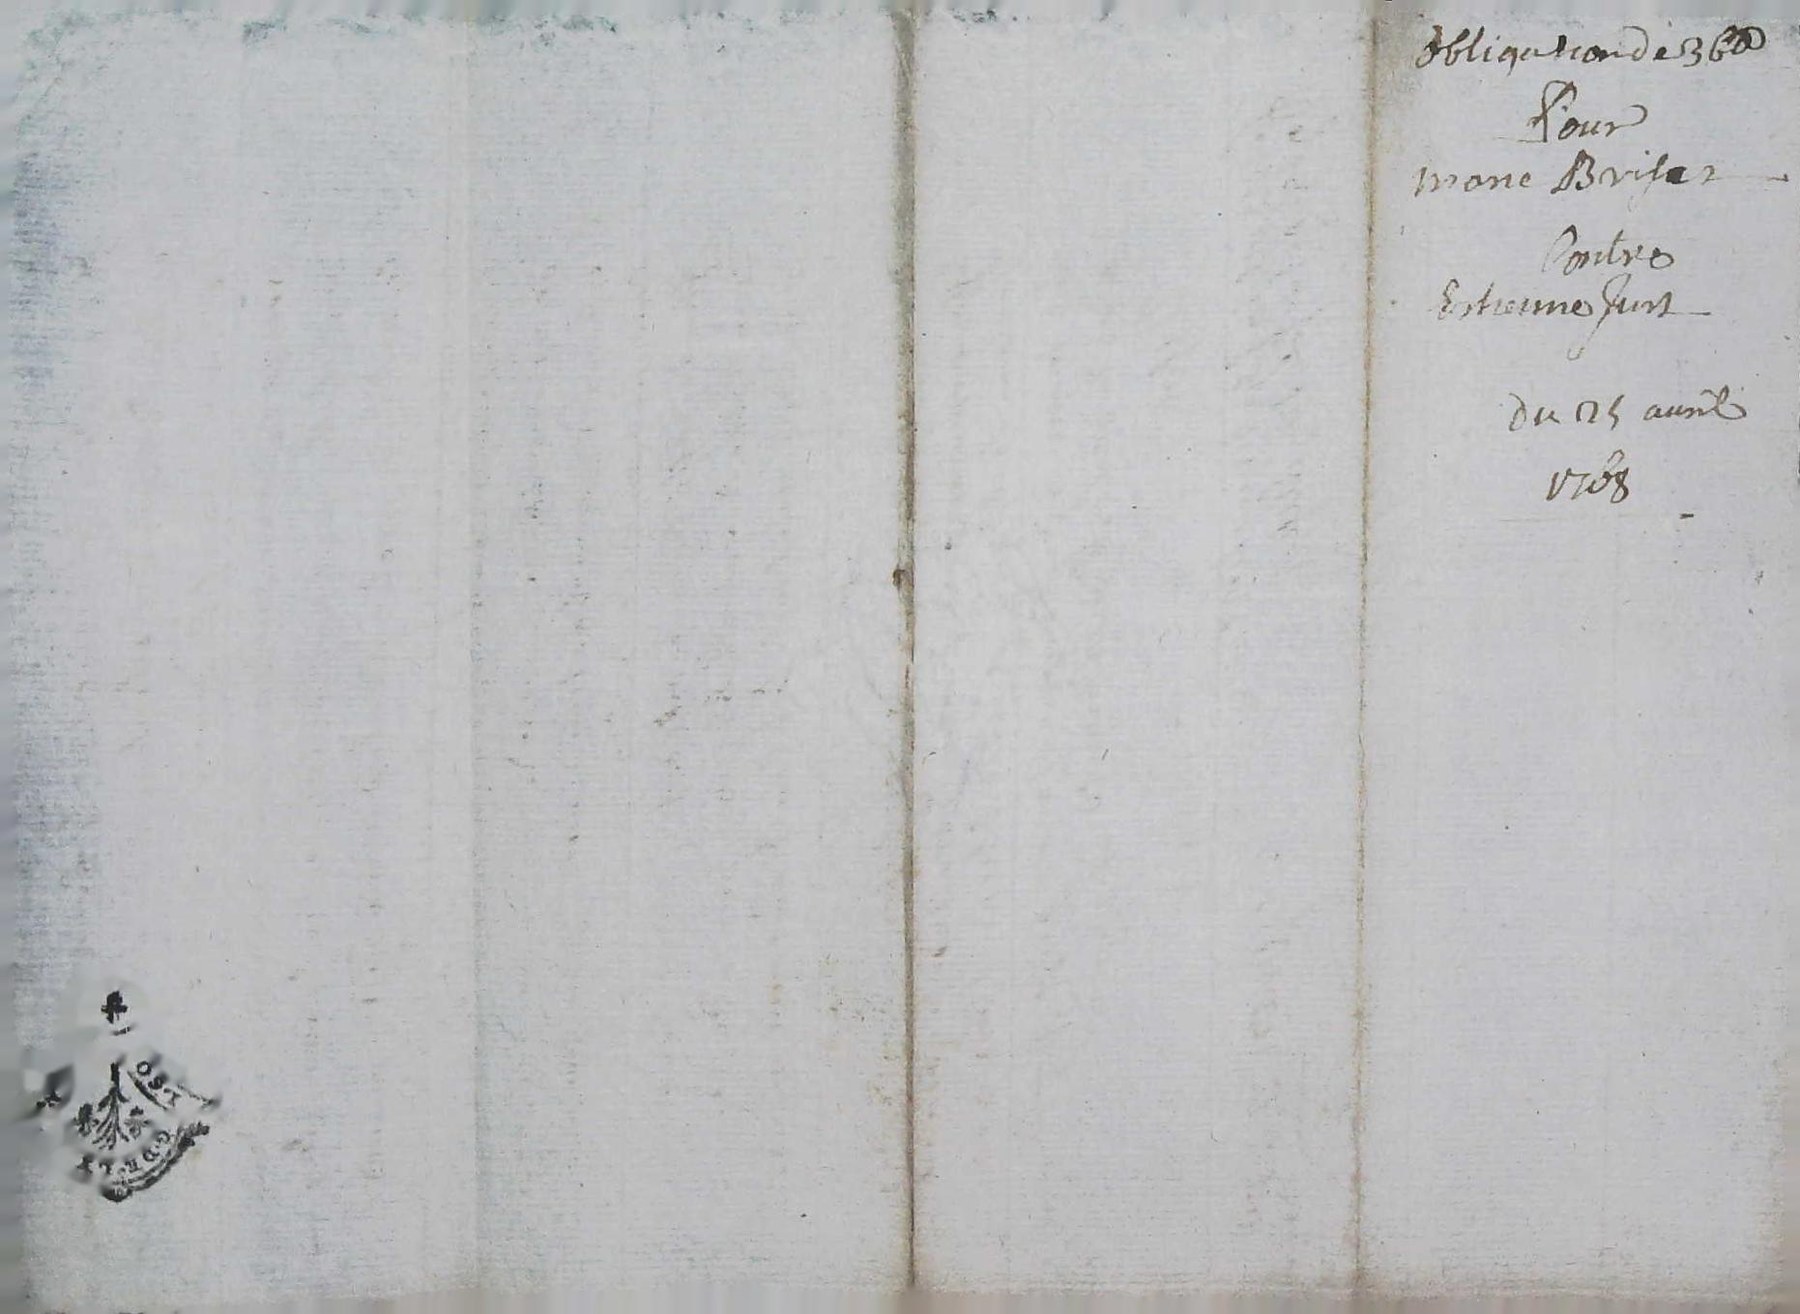 obligation de 36#
Pour
marie Briset
Contre
Estienne Just
du 25 auril
1768
G. DE. LY